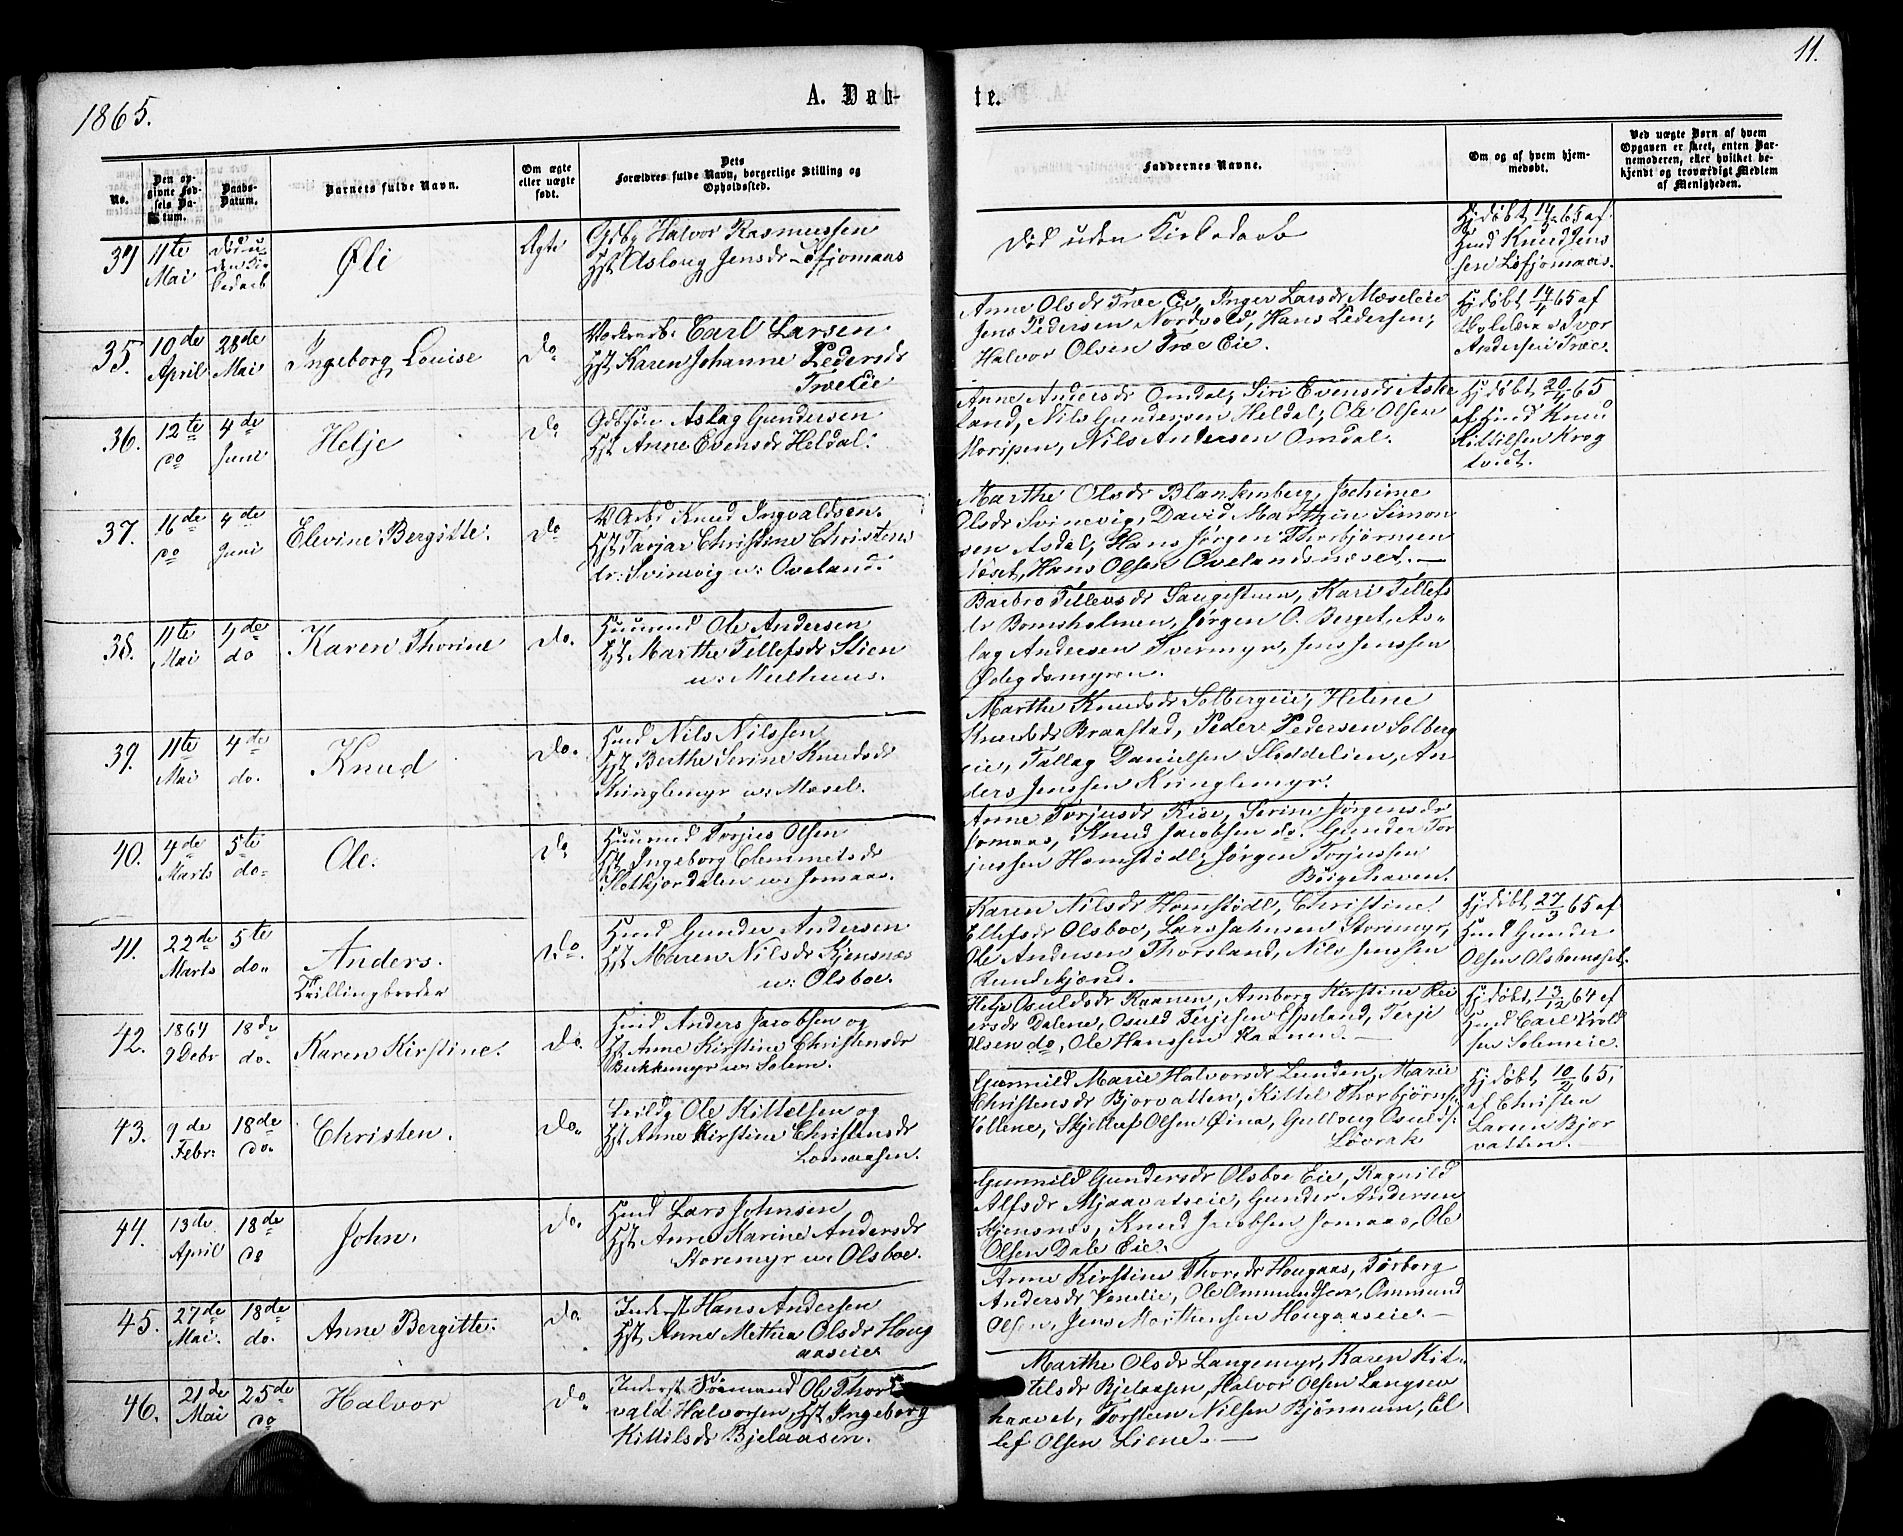 1865.
A. Døb-
te.
11.
No.
Den op-
givne Fød-
sels Da-
tum.
Daabs-
Datum.
Barnets fulde Navn.
Om ægte
eller uægte
født.
Dets
Forældres fulde Navn, borgerlige Stilling og
Opholdssted.
Faddernes Navne.
Om og af hvem hjem-
medøbt.
Ved uægte Børn af hvem
Opgaven er skeet, enten Bar-
nemoderen, eller hvilket be-
kjendt og troværdigt Medlem
af Menigheden.
34
11te
Mai
Død u-
den Kir-
kedaab
Øli
Ægte
Gdbr Halvor Rasmussen
Hst Aslaug Jensdr Løfjomaas
Død uden Kirkedaab
Hjdøbt 14/5 65 af
Hmd Knud Jens
sen Løfjomaas.
35.
10de
April
28de
Mai
Ingeborg Louise
do
Carl Larsen
Hst Karen Johanne Pedersdr
Træ Eie
Anne Olsdr Træ Eie, Inger Larsdr Mæseleie
Jens Pedersen Nordvold, Hans Pedersen,
Halvor Olsen Træ Eie.
Hjdøbt 14/4 65 af
Ivar
Andersen Træe.
36.
12te
do
4de
Juni
Helje
do
Gdbsøn Aslag Gundersen
Hst Anne Evensdr Heldal.
Anne Andersdr Omdal, Siri Evensdr Aske
land, Nils Gundersen Heldal, Ole Olsen
Moripen, Nils Andersen Omdal.
Hjdøbt 20/4 65
af Hmd Knud
Kittilsen Krog
tvedt.
37.
16de
do
4de
Juni
Elevine Bergitte.
do
V Arbd Knud Ingvaldsen.
Hst Tarjar Christine Christens
dr. Svinevig u: Oveland.
Marthe Olsdr Blankenberg, Jochime
Olsdr Svinevig, David Marthin Simon
sen Asdal, Hans Jørgen Thorbjørnsen
Næset, Hans Olsen Ovelandsneset.
38.
11te
Mai
4de
do
Karen Thorine
do.
Huusmd Ole Andersen
Hst Marthe Tellefsdr Stien
u: Mulhuus.
Barbro Tellevsdr Saugstuen, Kari Tellefs
dr Bomsholmen, Jørgen O. Berget, As-
lag Andersen Tvermyr, Jens Jenssen
Ødegdsmyren.
39.
11te
Mai
4de
do.
Knud
do.
Hmd Nils Nilssen
Hst Berthe Serine Knudsdr
Kringlemyr u: Mæsel.
Marthe Knudsdr Solbergeie, Helene
Knudsdr Braastad, Peder Pedersen Solberg
eie, Tallag Danielsen Sleddelien, An
ders Jenssen Kringlemyr.
40.
4de
Marts
5te
do
Ole.
do
Huusmd Torjus Olsen
Hst Ingeborg Clemmetsdr
Slotkjærdalen u: Jomaas.
Anne Torjusdr Rise, Serine Jørgensdr
Jomaas, Knud Jacobsen do Gunder Tor
jussen Homstødl, Jørgen Torjussen
Bøigehaven.
41.
22de
Marts
5te
do
Anders.
Trillingbroder
do.
Hmd Gunder Andersen
Hst Maren Nilsdr Kjensnæs
u: Olsboe.
Karen Nilsdr Homstødl, Christine
Ellefsdr Olsboe, Lars Johnsen Storemyr,
Ole Andersen Thorsland, Nils Jenssen
Rundekjærnd.
Hjdøbt 27/3 65 af
Hmd Gunder
Olsen
42.
1864
9 Debr
18de
do.
Karen Kirstine.
do
Hmd Anders Jacobsen og
Hst Anne Kirstine Christensdr
Bukkemyr u: Solem.
Helje Osuldsdr Raanen, Amborg Kirstine Rei
ersdr Dalene, Osuld Terjesen Espeland, Terje
Olsen do, Ole Hanssen Raanen.
Hjdøbt 13/12 64 af
Hmd Carl Krold
sen Solemeie.
43.
9de
Febr:
18de
do.
Christen.
do.
Ole Kittelsen og
Hst Anne Kirstine Christensdr
Løvraasen.
Gunnild Marie Halvorsdr Lunden, Marie
Christensdr Bjorvatten, Kittel Thorbjørns:
Vollene, Skjellef Olsen Øina, Gullaug Osulds:
Løvrak
Hjdøbt 10/2 65,
af Christen
Larsen Bjor
vatten.
44.
13de
April
18de
do
John.
do.
Hmd Lars Johnsen
Hst Anne Karine Andersdr
Storemyr u: Olsboe.
Gunnild Gundersdr Olsboe Eie, Ragnild
Alfsdr Mjaavatseie, Gunder Andersen
Kjensnæs, Knud Jacobsen Jomaas, Ole
Olsen Dale Eie.
45.
27de
Mai.
18de
do.
Anne Bergitte.
do
Inderst Hans Andersen
Hst Anne Mathea Olsdr Houg
aaseie
Anne Kirstine Thorsdr Hougaas, Torborg
Andersdr Venelie, Ole Ommundsen, Ommund
Olsen, Jens Morthensen Hougaaseie.
46.
21de
Mai
25de
do
Halvor
do
Inderst Sømand Ole Thor
vald Halvorsen, Hst Ingeborg
Kittilsdr Bjelaasen.
Marthe Olsdr Langemyr, Karen Kit-
telsdr Bjelaasen, Halvor Olsen Langsev
haavet, Torsteen Nilsen Bjønnum, El
lef Olsen Liene.